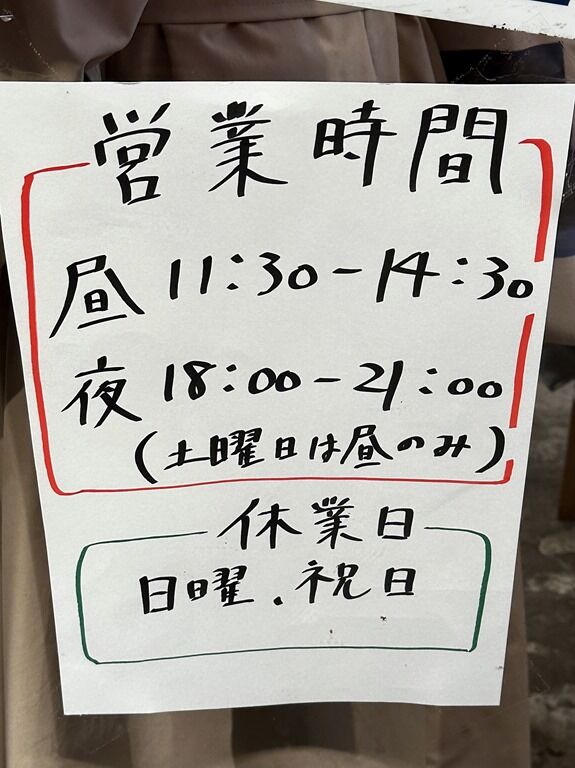 営業時間
昼 11:30-14:30
夜 18:00-21:00
(土曜日は昼のみ)
休業日
日曜.祝日